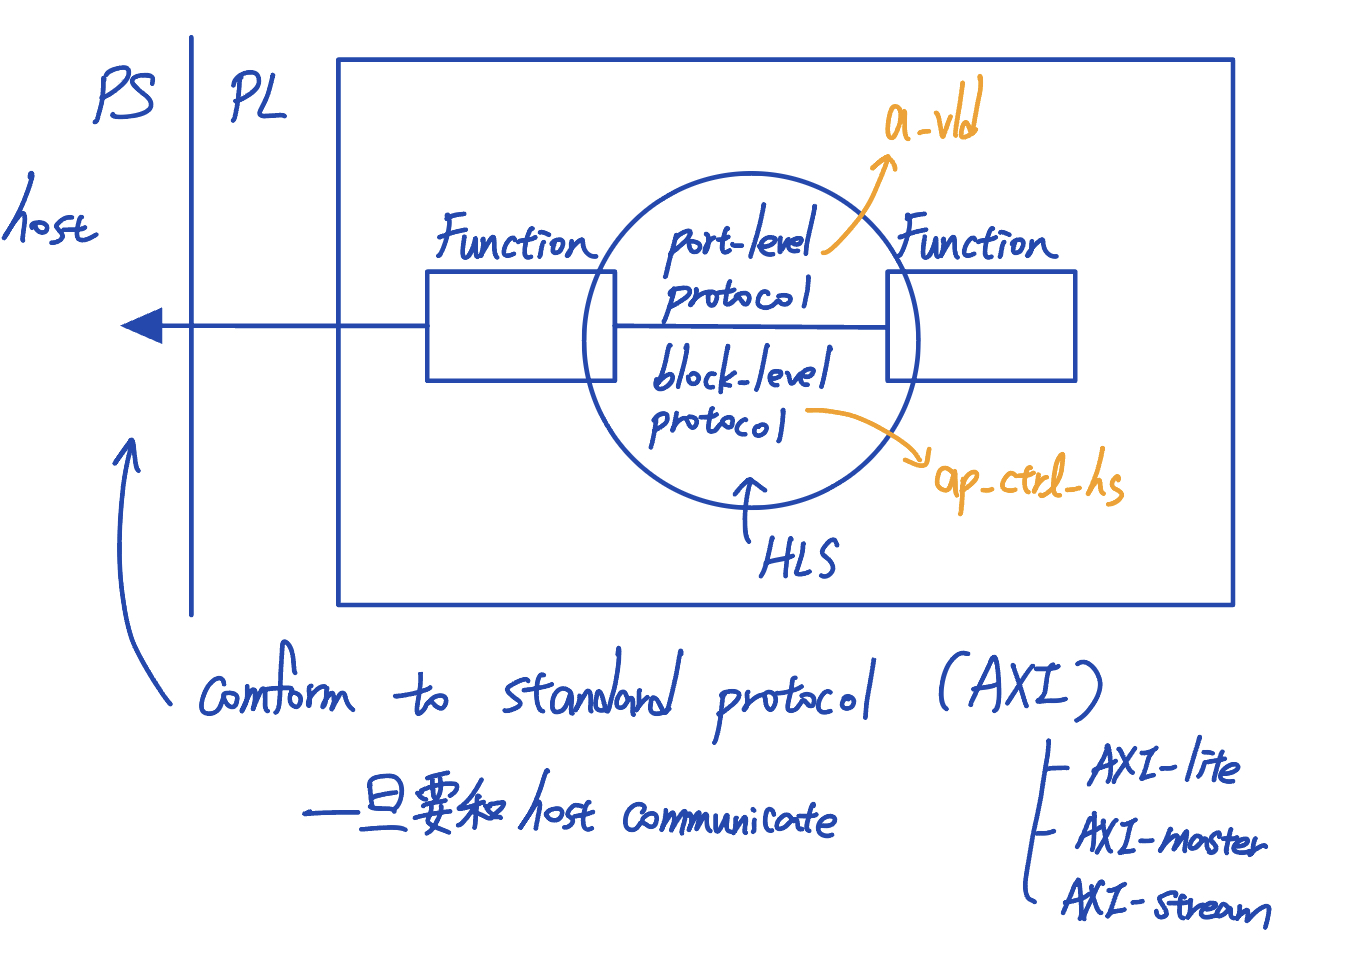 PS
PL
host
a_vld
Function
port-level
protocol
Function
block-level
protocol
ap_ctrl_hs
HLS
comform to standard protocol (AXI)
一旦要和 host communicate
AXI-lite
AXI-master
AXI-stream